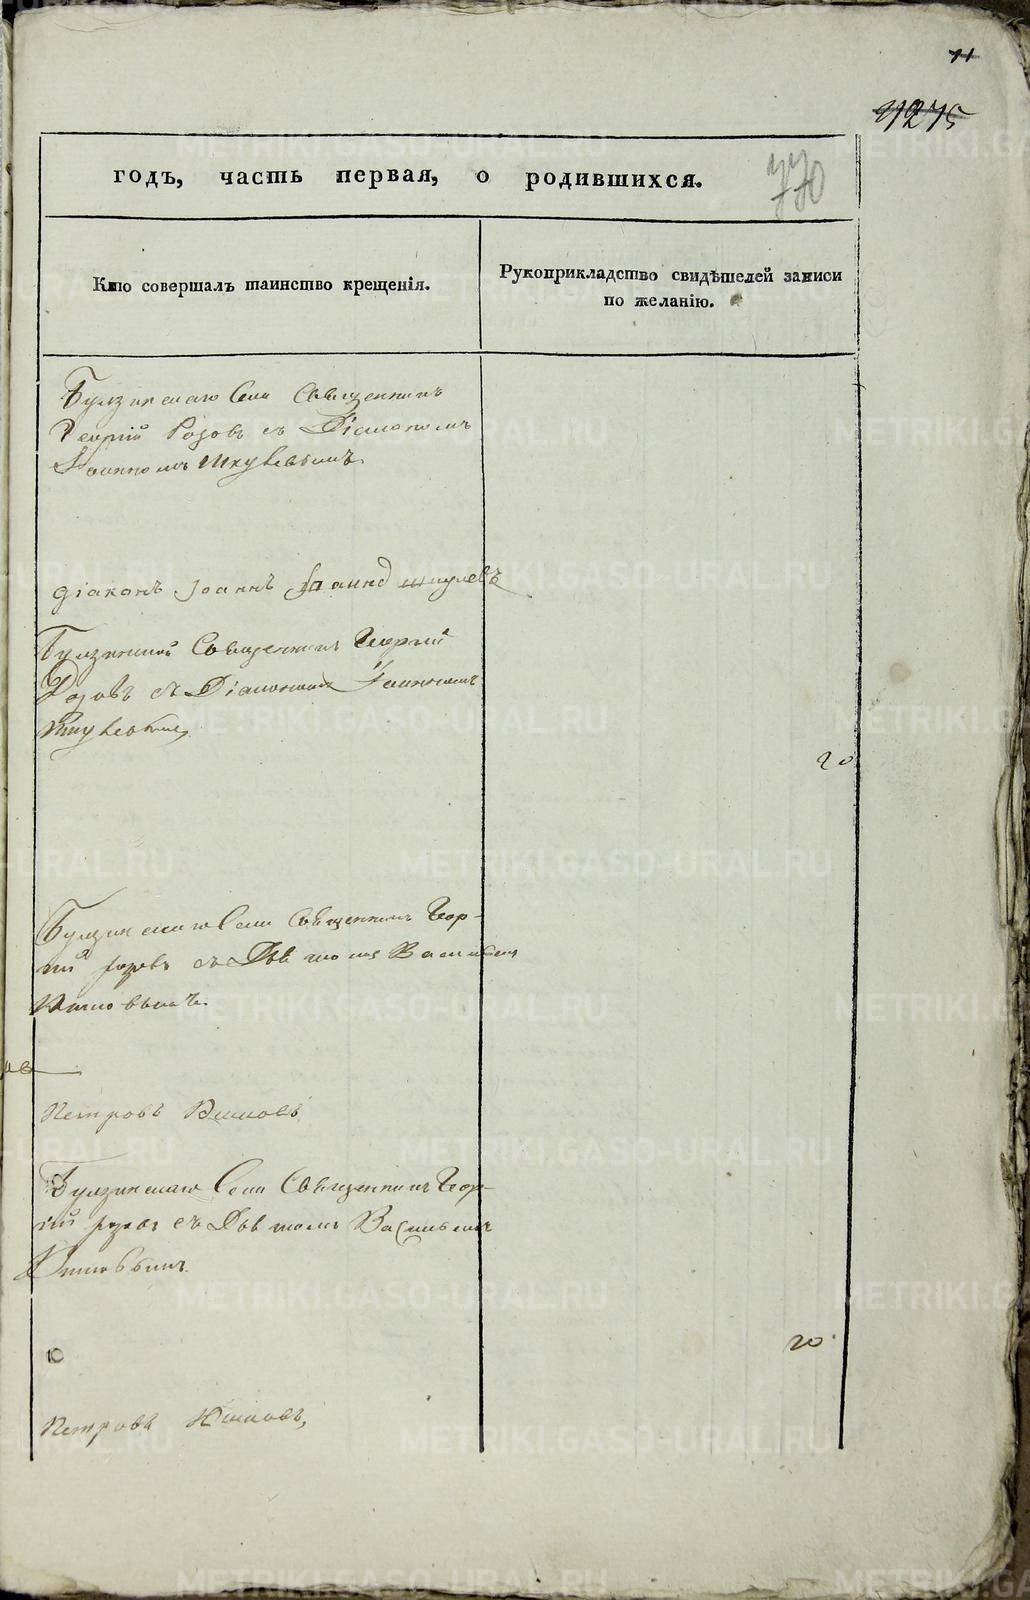 11
1275
годъ, часть первая, о родившихся. 770
Кто совершалъ таинство крещенія.
Рукоприкладство свидѣтелей записи
по желанію.
Булзинскаго Села Священникъ
Георгій Розовъ съ Діакономъ
Іоанномъ
діаконъ Іоаннъ
Булзинскій Священникъ Георгій
Розовъ съ Діакономъ Іоанномъ
20
Булзинскаго Села Священникъ Геор-
гій Розовъ съ Васильемъ
Петровъ
Булзинскаго Села Священникъ Геор-
гій Розовъ съ Васильемъ
20
Петровъ
METRIKI.GASO-URAL.RU